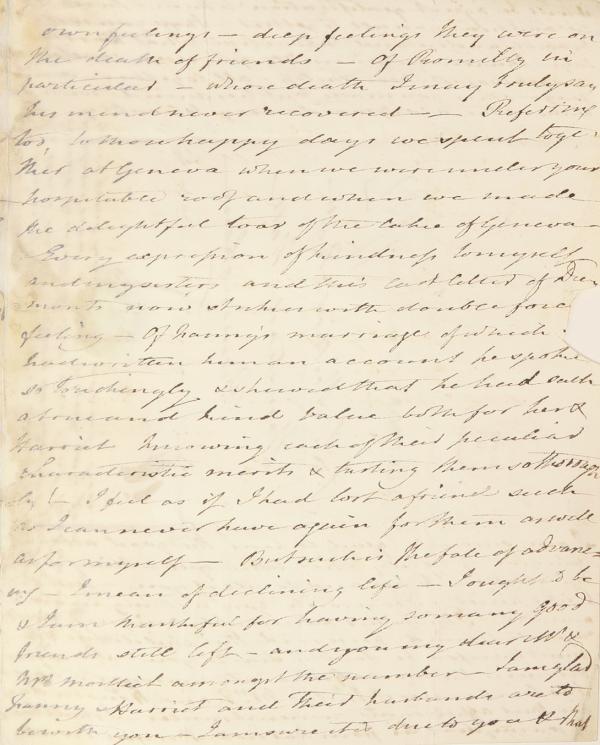 own feelings — deep feelings they were on
the death of friends — Of Romilly in
particular — whose death I may truly say
his mind never recovered — Referring
too, to those happy days we spent toge-
ther at Geneva when we were under your
hospitable roof and when we made
the delightful tour of the Lake of Geneva —
Every expression of kindness to myself
and my sisters and this last letter of
monts now strikes with double force
feeling — Of Fanny's marriage of which
had written him an account he spoke
so touchingly & shewed that he had such
a true and kind value both for her &
Harriet knowing each of their peculiar
characteristic merits & tasting them so thorough
ly! — I feel as if I had lost a friend such
as I can never have again for them as well
as for myself — But such is the fate of advanc-
ing — I mean of declining life — I ought to be
& I am thankful for having so many good
friends still left — and you my dear Mr &
Mrs Moilliet amongst the number — I am glad
Fanny & Harriet and their husbands are to
be with you — I am sure it is due to you & that